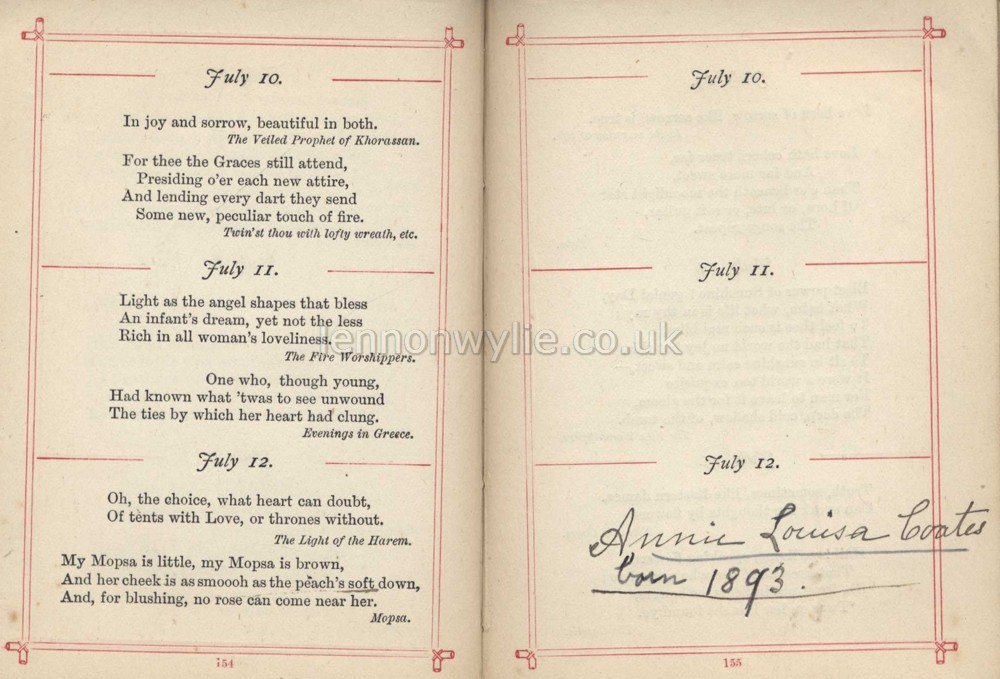 July 10.
In joy and sorrow, beautiful in both.
The Veiled Prophet of Khorassan.
For thee the Graces still attend,
Presiding o'er each new attire,
And lending every dart they send
Some new, peculiar touch of fire.
Twin'st thou with lofty wreath, etc.
July 11.
Light as the angel shapes that bless
An infant's dream, yet not the less
Rich in all woman's loveliness.
The Fire Worshippers.
One who, though young,
Had known what 'twas to see unwound
The ties by which her heart had clung.
Evenings in Greece.
July 12.
Oh, the choice, what heart can doubt,
Of tents with Love, or thrones without.
The Light of the Harem.
My Mopsa is little, my Mopsa is brown,
And her cheek is as smoooh as the peach's soft down,
And, for blushing, no rose can come near her.
Mopsa.
154
July 10.
July 11.
July 12.
Annie Louisa Coates
born 1893.
155
lennonwylie.co.uk